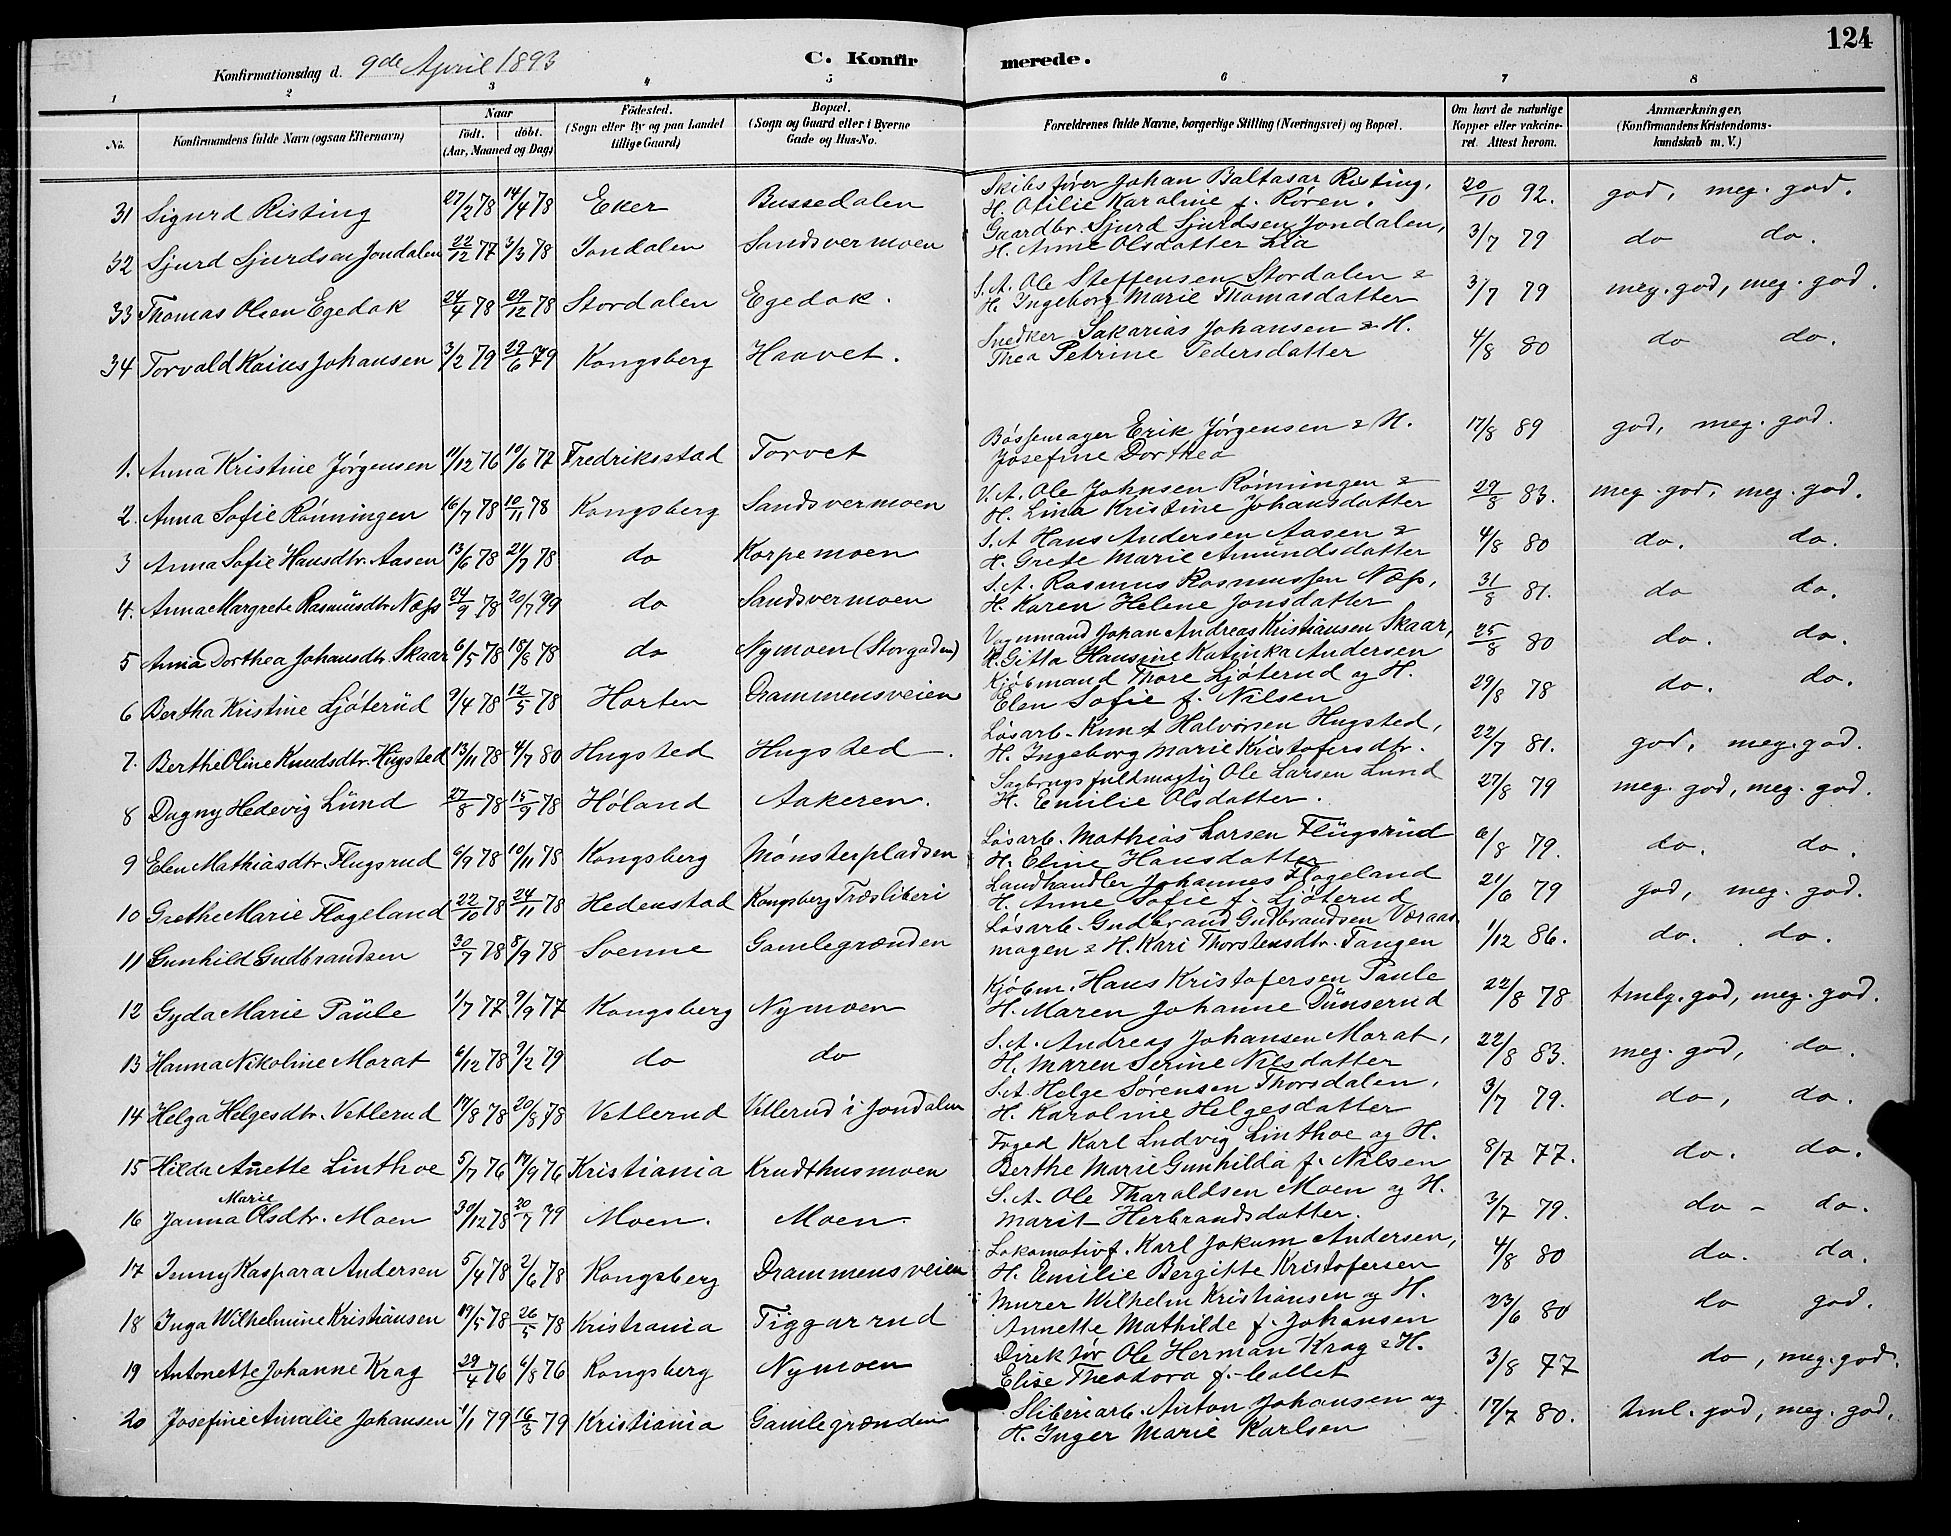 124
Konfirmationsdag d. 9de April 1893
C. Konfirmerede.
1 2 3 4 5 6 7 8
No. Konfirmandens fulde Navn (ogsaa Efternavn) Naar født. døbt. (Aar, Maaned og Dag) Fødested. (Sogn eller By og paa Landet tillige Gaard) Bopæl. (Sogn og Gaard eller i Byerne Gade og Hus-No. Forældrenes fulde Navne, borgerlige Stilling (Næringsvei) og Bopæl. Om havt de naturlige Kopper eller vakcineret. Attest herom. Anmærkninger, (Konfirmandens Kristendomskundskab m. V.)
31 Sigurd Risting 27/2 78 14/4 78 Eker Bussedalen Skibsfører Johan Baltasar Risting, H. Otilie Karoline f. Røren. 20/10 92. god, meg. god.
32 Sjurd Sjurdsen Jondalen 22/12 77 3/3 78 Jondalen Sandsvermoen Gaardbr. Sjurd Sjurdsen Jondalen, H. Anne Olsdatter Lia 3/7 79 do do.
33 Thomas Olsen Egedok 24/4 78 29/12 78 Stordalen Egedok. S.A. Ole Steffensen Stordalen & H. Ingeborg Marie Thomasdatter 3/7 79 meg. god, meg. god.
34 Torvald Kaius Johansen 3/2 79 29/6 79 Kongsberg Haavet. Snedker Sakarias Johansen & H. Thea Petrine Pedersdatter 4/8 80 do do.
1. Anna Kristine Jørgensen 11/12 76 10/6 77 Fredriksstad Torvet Bøssemager Erik Jørgensen & H. Josefine Dorthea 17/8 89 god, meg. god.
2. Anna Sofie Rønningen 16/7 78 10/11 78 Kongsberg Sandsvermoen V.A. Ole Johnsen Rønningen & H. Lina Kristine Johansdatter 29/8 83. meg. god, meg. god.
3 Anna Sofie Hansdtr. Aasen 13/6 78 21/7 78 do Korpemoen S.A. Hans Andersen Aasen & H. Grete Marie Amundsdatter 4/8 80 do. do.
4. Anna Margrete Rasmusdtr. Næss 24/9 78 20/7 79 do Sandsvermoen S.A. Rasmus Rasmussen Næss, H. Karen Helene Jonsdatter 31/8 81. do do.
5 Anna Dorthea Johansdtr. Skaar 6/5 78 18/8 78 do Nymoen (Storgaden) Vognmand Johan Andreas Kristiansen Skaar, H. Gitta Hansine Katinka Andersen 25/8 80 do. do.
6 Bertha Kristine Ljøterud 9/4 78 12/5 78 Horten Drammensveien Kjøbmand Thore Ljøterud og H. Elen Sofie f. Nilsen 29/8 78 do. do.
7. Berthe Oline Knudsdtr. Hugsted 13/11 78 4/7 80 Hugsted Hugsted Løsarb. Knut Halvorsen Hugsted, H. Ingeborg Marie Kristofersdtr. 22/7 81. god, meg. god.
8 Dagny Hedevig Lund 27/8 78 15/9 78 Høland Aakeren. Sagbrugsfuldmægtig Ole Larsen Lund H. Emilie Olsdatter. 27/8 79 meg. god, meg. god.
9 Elen Mathiasdtr. Flugsrud 6/9 78 10/11 78 Kongsberg Mønsterpladsen Løsarb. Mathias Larsen Flugsrud H. Eline Hansdatter 6/8 79. do. do.
10 Grethe Marie Flogeland 22/10 78 24/11 78 Hedenstad Kongsberg Træsliberi Landhandler Johannes Flogeland H. Anne Sofie f. Ljøterud 21/6 79 god, meg. god.
11 Gunhild Gudbrandsen 30/7 78 8/9 78 Svenne Gamlegrænden Løsarb. Gudbrand Gudbrandsen Væraas mogen & H. Kari Thorstensdtr. Tangen 1/12 86. do. do.
12 Gyda Marie Paule 1/7 77 9/9 77 Kongsberg Nymoen Kjøbm. Hans Kristofersen Paule H. Maren Johanne Dunserud 22/8 78 tmlg. god, meg. god.
13 Hanna Nikoline Morat 6/12 78 9/2 79 do do S.A. Andreas Johansen Morat, H. Maren Serine Nilsdatter 22/8 83. meg. god, do.
14 Helga Helgesdtr. Vetlerud 17/8 78 20/8 78 Vetlerud Vetlerud i Jondalen S.A. Helge Sørensen Thorsdalen, H. Karoline Helgesdatter 3/7 79. do, do.
15 Hilda Anette Linthoe 5/7 76 17/9 76 Kristiania Krudthusmoen Foged Karl Ludvig Linthoe og H. Berthe Marie Gunhilda f. Nilsen 8/7 77. do. do.
16 Janna Marie Olsdtr. Moen 30/12 78 20/7 79 Moen. Moen. S.A. Ole Tharaldsen Moen og H. Marit Herbrandsdatter. 3/7 79. do - do.
17 Jenny Kaspara Andersen 5/4 78 2/6 78 Kongsberg Drammensveien Lokomotivf. Karl Jokum Andersen, H. Emilie Bergitte Kristofersen 4/8 80 do. do.
18 Inga Wilhelmine Kristiansen 19/5 78 26/5 78 Kristiania Tiggarrud Murer Wilhelm Kristiansen og H. Annette Mathilde f. Johansen 23/6 80 do god.
19 Antonette Johanne Krag 29/4 76 6/8 76 Kongsberg Nymoen Direktør Ole Herman Krag & H. Elise Theodora f. Collet 3/8 77 do, meg. god.
20 Josefine Amalie Johansen 1/1 79 16/3 79 Kristiania Gamlegrænden Sliberiarb. Anton Johansen og H. Inger Marie Karlsen 17/7 80. tml. god, meg. god.